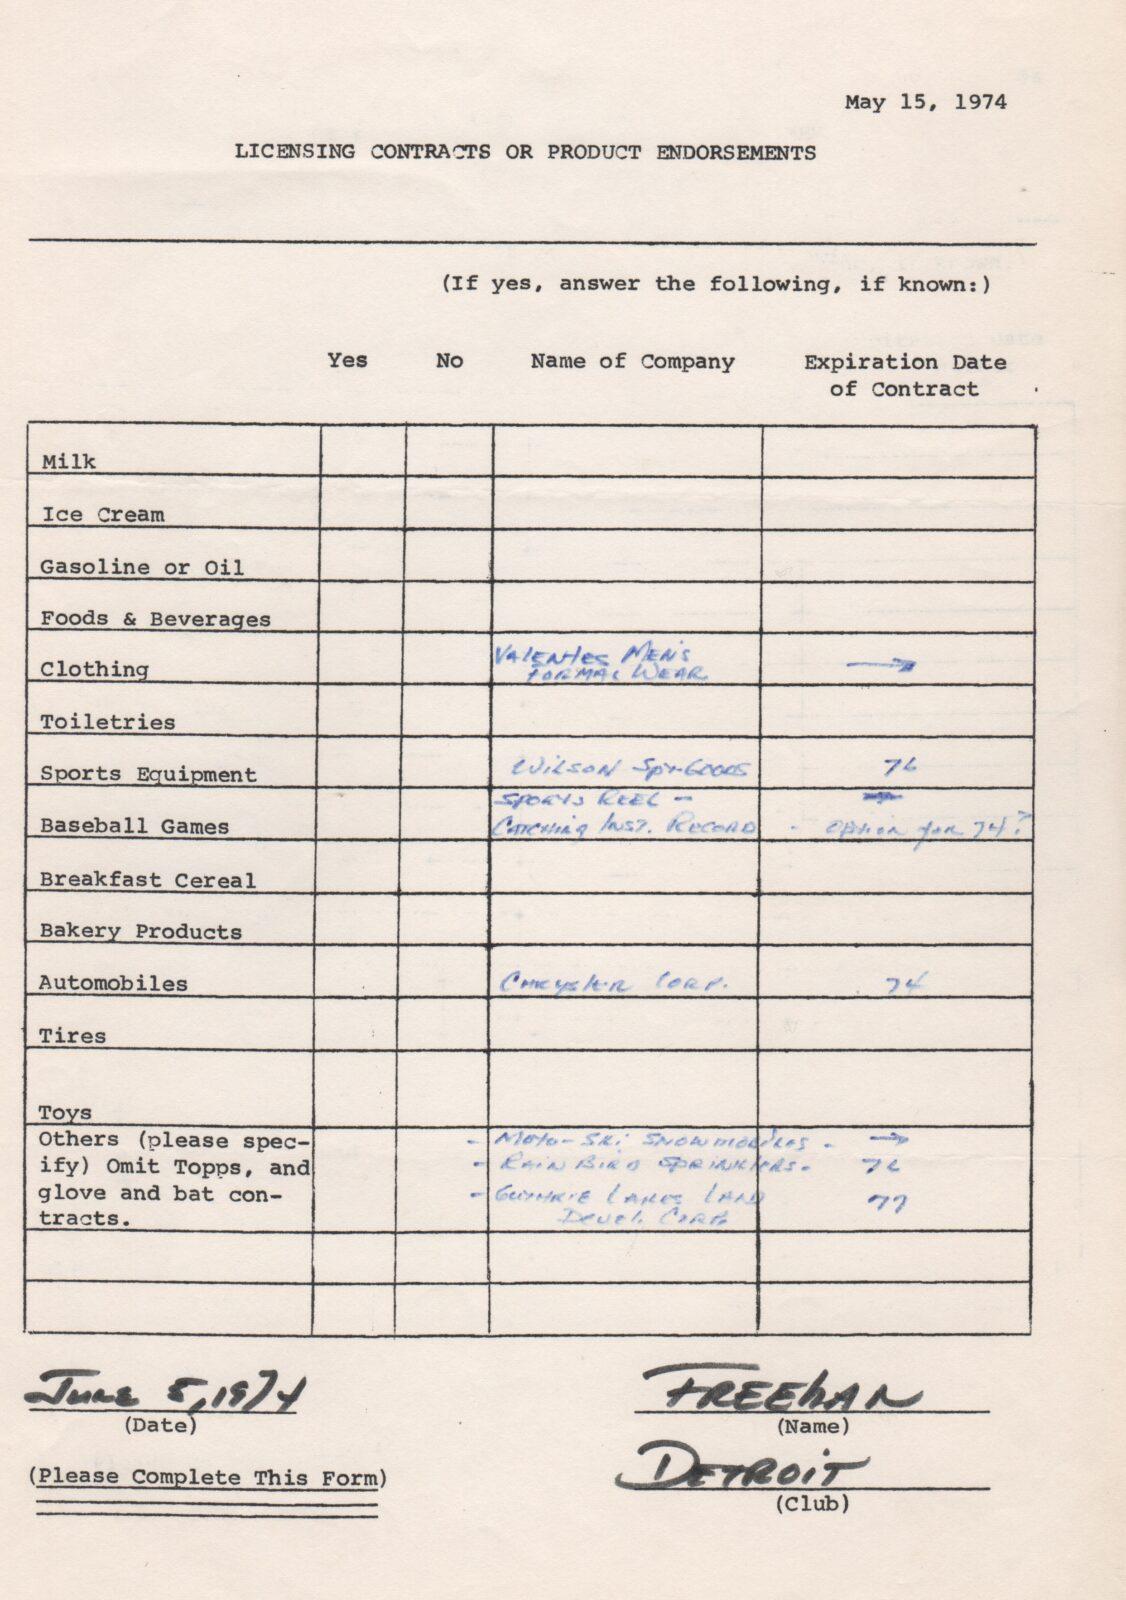 May 15, 1974
LICENSING CONTRACTS OR PRODUCT ENDORSEMENTS
(If yes, answer the following, if known:)
Yes No Name of Company Expiration Date
of Contract
Milk
Ice Cream
Gasoline or Oil
Foods & Beverages
Valentes Men's
Clothing Formal Wear →
Toiletries
Sports Equipment Wilson Spt-Goods 76
Sports Reel - →
Baseball Games Catching Inst. Record - option for 74?
Breakfast Cereal
Bakery Products
Automobiles Chrysler Corp. 74
Tires
Toys
Others (please spec- - Moto-Ski Snowmobiles - →
ify) Omit Topps, and - Rain Bird Sprinklers - 76
glove and bat con- - Guthrie Lakes Land 77
tracts. Devel. Corp.
June 5, 1974 FREEHAN
(Date) (Name)
(Please Complete This Form) DETROIT
(Club)